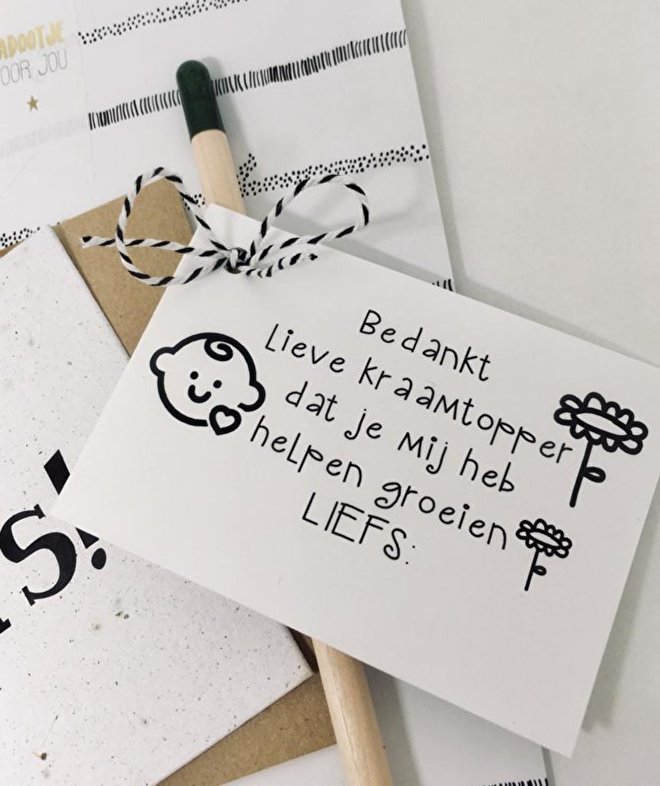 OOR JOU
Bedankt
Lieve kraamtopper
dat je mij heb
helpen groeien
LIEFS:
S!